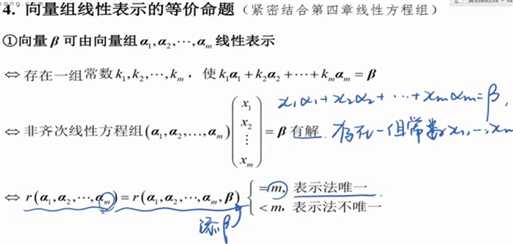 4. 向量组线性表示的等价命题（紧密结合第四章线性方程组）
①向量 β 可由向量组 α₁, α₂, ⋯, αₘ 线性表示
⇔ 存在一组常数 k₁, k₂, ⋯, kₘ，使 k₁α₁ + k₂α₂ + ⋯ + kₘαₘ = β
x₁α₁ + x₂α₂ + ⋯ + xₘαₘ = β,
⇔ 非齐次线性方程组 (α₁, α₂, …, αₘ) (x₁ x₂ ⋮ xₘ) = β 有解
存在一组常数 x₁, ⋯, xₘ
⇔ r(α₁, α₂, ⋯, αₘ) = r(α₁, α₂, ⋯, αₘ, β) { = m, 表示法唯一
< m, 表示法不唯一
添β